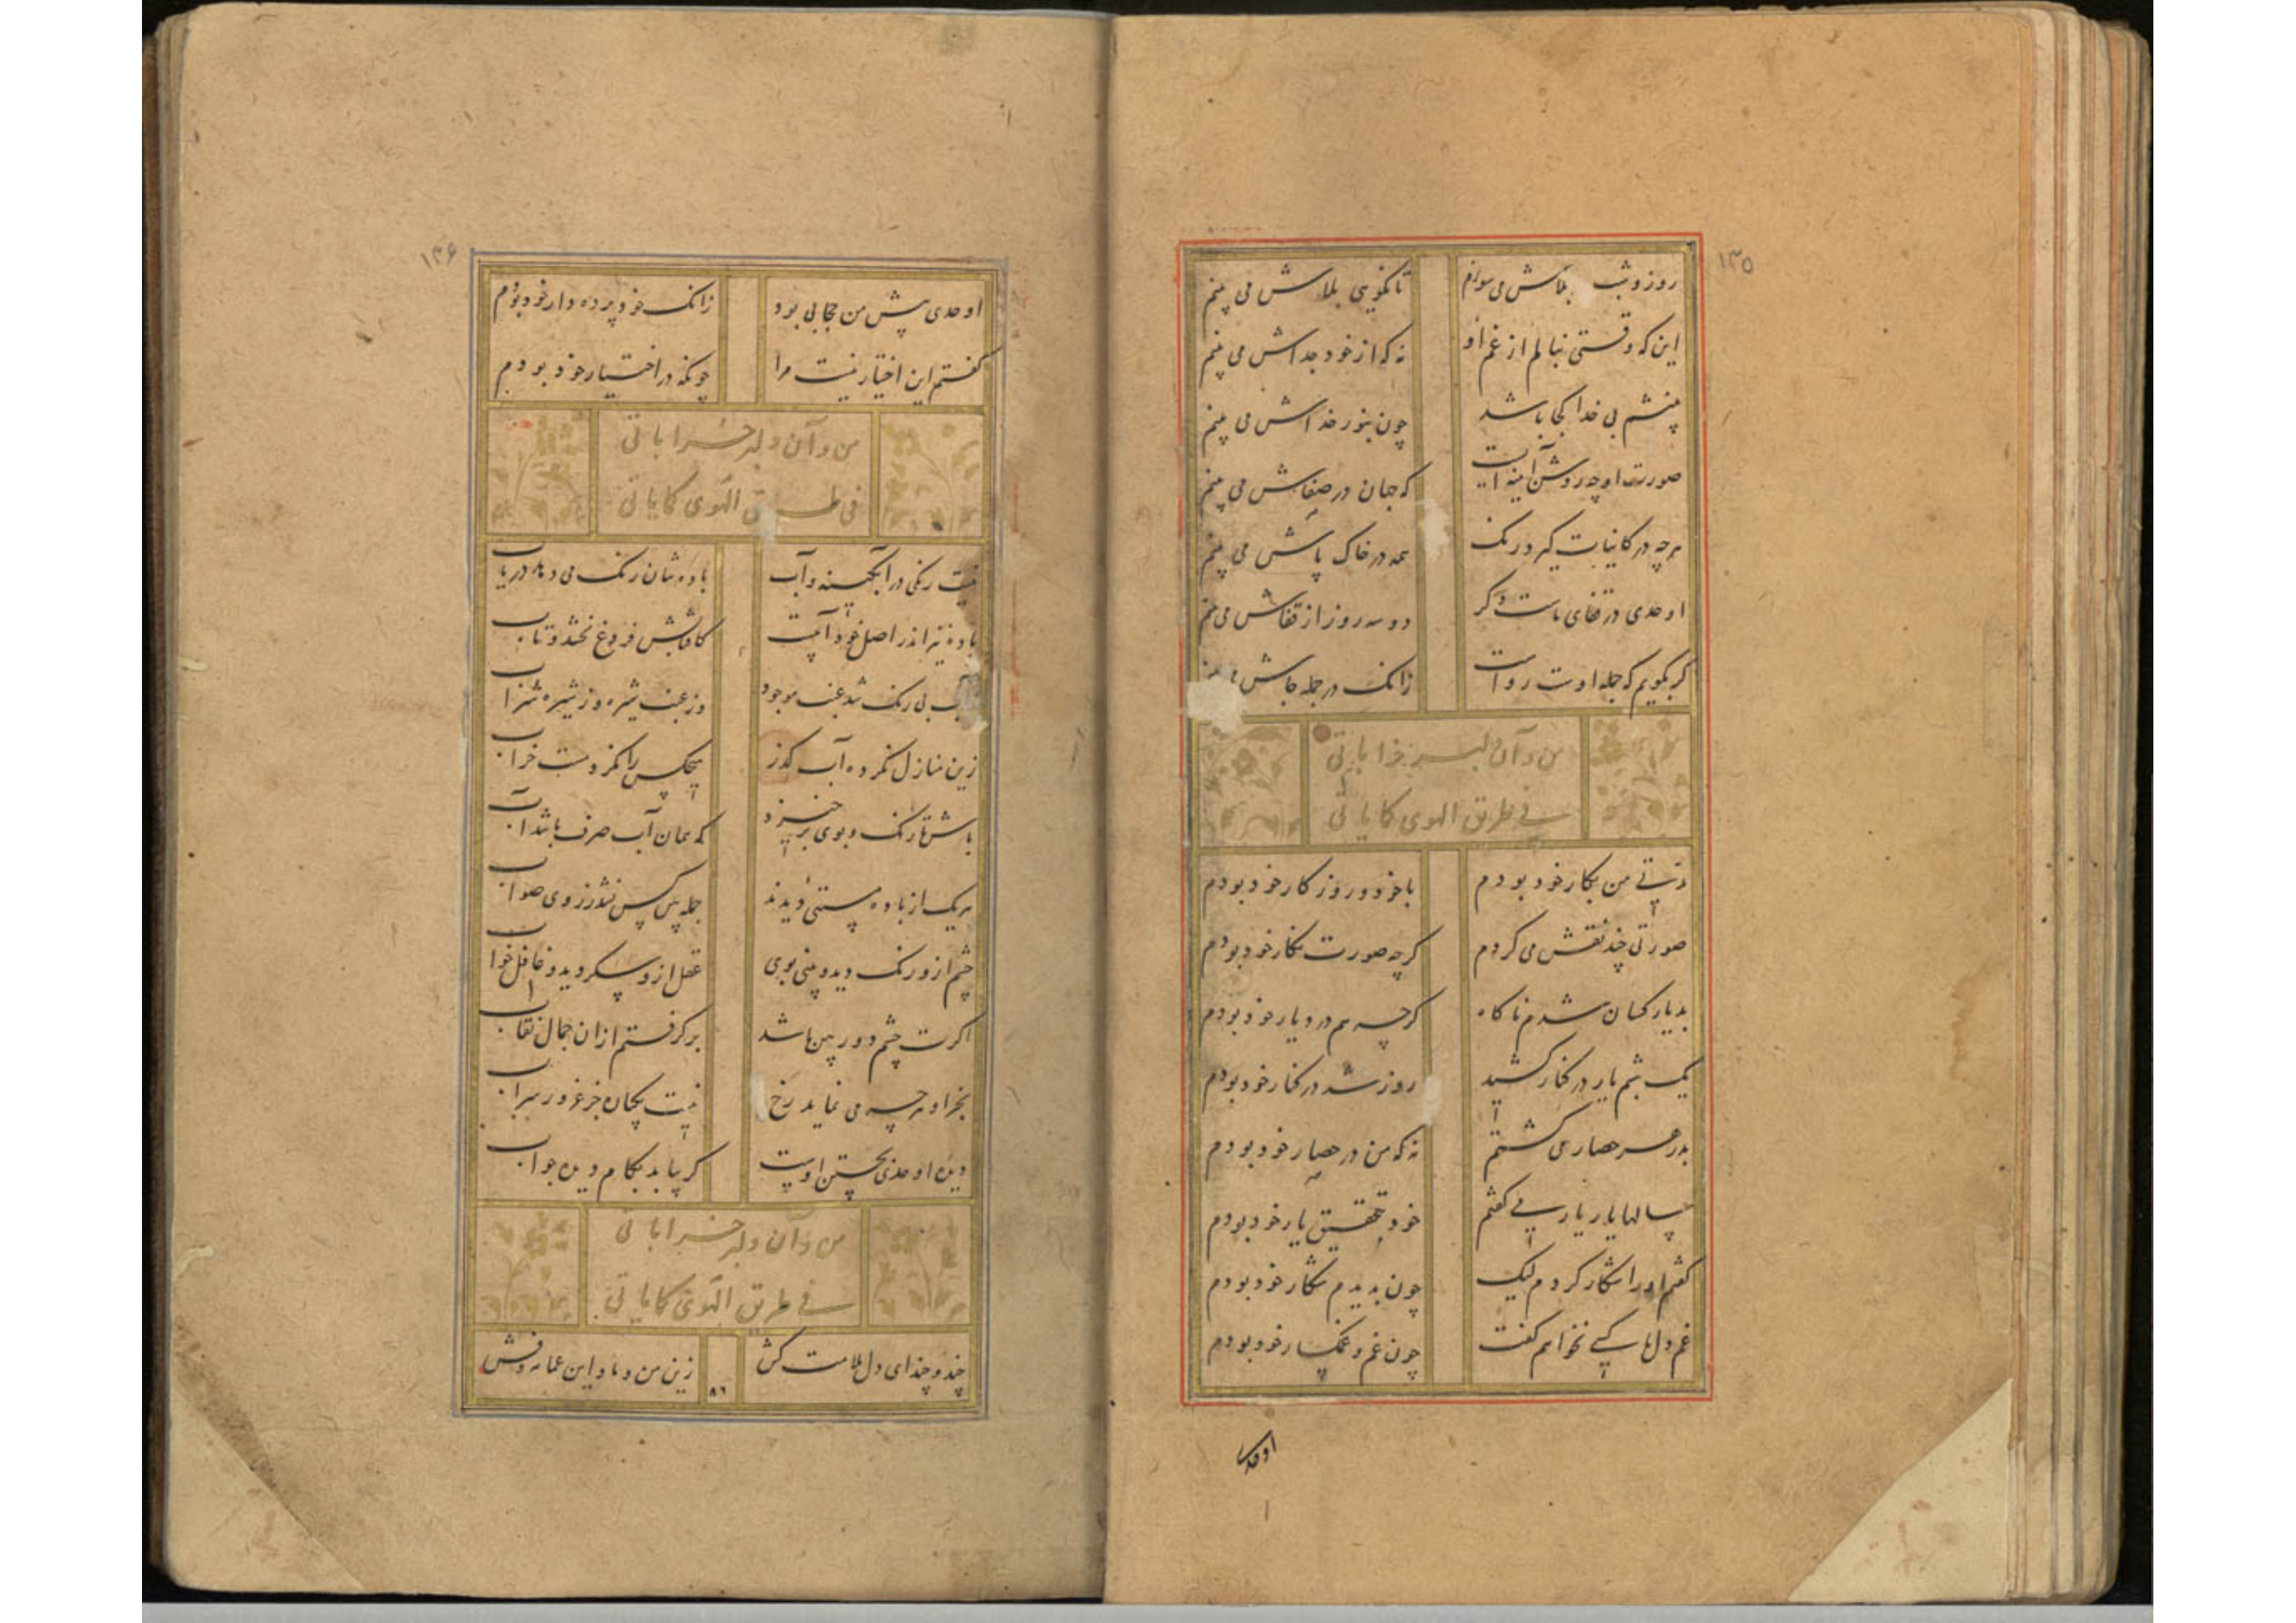 ۱۳۵
روز و شب بلاش می سوزم تا نگویی بلاش می بینم
این که وقتی بنالم از غم او نه که از خود جداش می بینم
بینشم بی خدا کجا باشد چون بنور خداش می بینم
صورت او چه روشن آینه ایست که جهان در صفاش می بینم
هر چه در کاینات گیرد رنگ همه در خاک پاش می بینم
اوحدی در قفای ماست و گر دو سه روز از قفاش می بینم
گر بگویم که جمله اوست رواست زانک در جمله جاش می بینم
من و آن دلبر خراباتی
فی طریق الهوی کمایاتی
مدتی من بکار خود بودم با خود و روزگار خود بودم
صورتی چند نقش می کردم گرچه صورت نگار خود بودم
بدیار کسان شدم ناگاه گرچه هم در دیار خود بودم
یک شبم یار در کنار کشید روز شد در کنار خود بودم
بدر هر حصار می گشتم نه که من در حصار خود بودم
سالها یار یار می گفتم خود بتحقیق یار خود بودم
گفتم او را شکار کردم لیک چون بدیدم شکار خود بودم
غم دل با کسی نخواهم گفت چون غم و غمگسار خود بودم
اوحدی
۱۳۶
اوحدی پیش من حجابی بود زانک خود پرده دار خود بودم
گفتم این اختیار نیست مرا چونکه در اختیار خود بودم
من و آن دلبر خراباتی
فی طریق الهوی کمایاتی
نیست رنگی در آبگینه و آب باده شان رنگ می دهد دریاب
باده نیز اندر اصل خود آبیست کافتابش فروغ بخشد و تاب
آب بی رنگ شد عنب موجود وز عنب شیره وز شیره شراب
زین منازل نکرده آب گذر هیچکس را نکرد مست خراب
باش تا رنگ و بوی برخیزد که همان آب صرف باشد آب
هر یک از باده مستئی دیدند جمله پی کس نشد ز روی صواب
چشم ازو رنگ دید و بینی بوی عقل ازو سکر دید و غافل خواب
اگرت چشم دوربین باشد برگرفتم از آن جمال نقاب
بجز او هرچه می نماید رخ نیست یکبار جز غرور سراب
دیده اوحدی بجستن اوست گر بیابد بکام دیده جواب
من و آن دلبر خراباتی
فی طریق الهوی کمایاتی
چند و چند ای دل ملامت کش زین من و ما و این عمامه و فش
۸۶